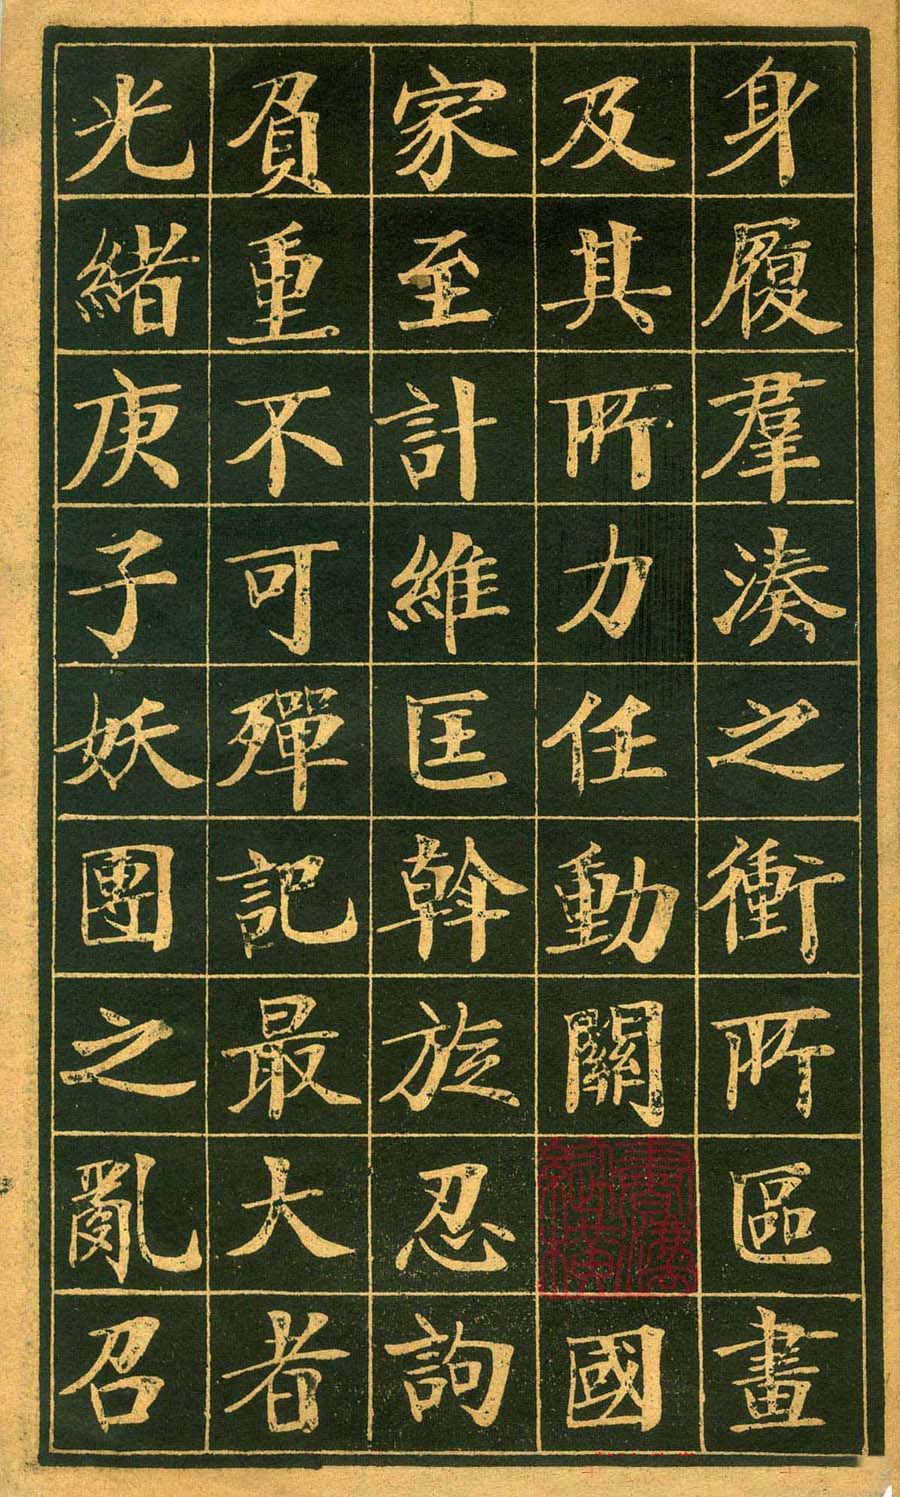 身履羣湊之衝所區畫
及其所力任動關國
家至計維匡斡於忍詢
負重不可殫記最大者
光緒庚子妖團之亂召